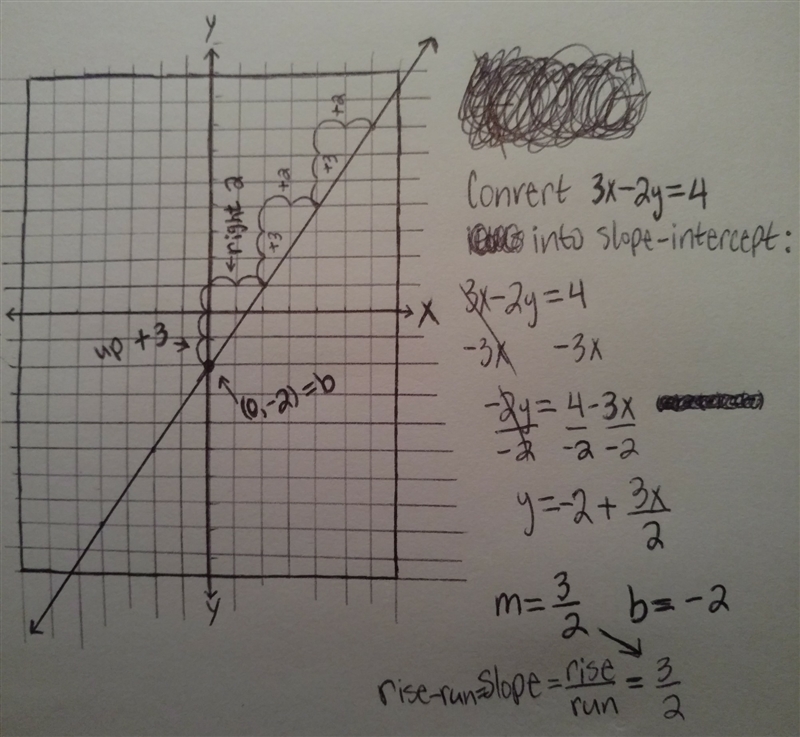 Y
+2
+3
+2
+3
←right 2
X
up +3→
(0,-2)=b
Y
Convert 3x-2y=4
into slope-intercept:
3x-2y=4
-3x -3x
-2y = 4-3x
-2 -2 -2
y=-2+3x/2
m=3/2 b=-2
rise-run=slope=rise/run=3/2